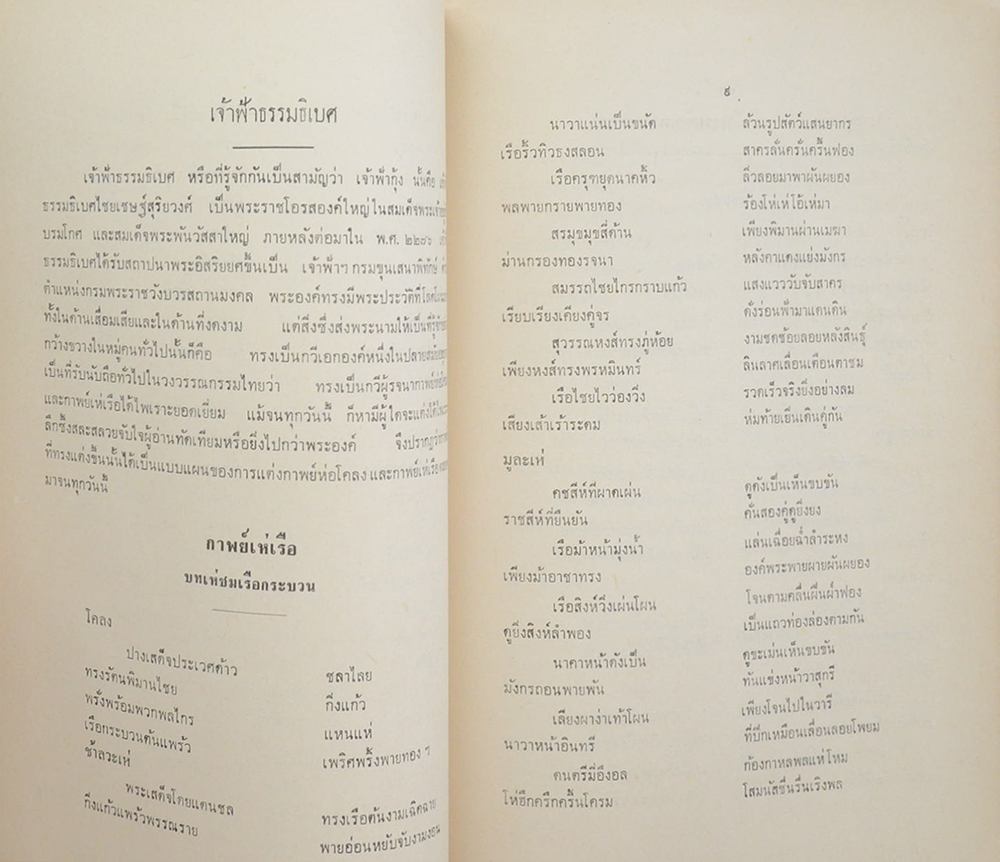 เจ้าฟ้าธรรมธิเบศ
เจ้าฟ้าธรรมธิเบศ หรือที่รู้จักกันเป็นสามัญว่า เจ้าฟ้ากุ้ง นั้นคือ
ธรรมธิเบศไชยเชษฐ์สุริยวงศ์ เป็นพระราชโอรสองค์ใหญ่ในสมเด็จพระเจ้า
บรมโกศ และสมเด็จพระพันวัสสาใหญ่ ภายหลังต่อมาใน พ.ศ. ๒๒๗๖
ธรรมธิเบศได้รับสถาปนาพระอิสริยยศขึ้นเป็น เจ้าฟ้าฯ กรมขุนเสนาพิทักษ์
ตำแหน่งกรมพระราชวังบวรสถานมงคล พระองค์ทรงมีพระประวัติที่
ทั้งในด้านเสื่อมเสียและในด้านที่งดงาม แต่สิ่งซึ่งส่งพระนามให้เป็นที่รู้จัก
กว้างขวางในหมู่คนทั่วไปนั้นก็คือ ทรงเป็นกวีเอกองค์หนึ่งในปลาย
เป็นที่รับนับถือทั่วไปในวงวรรณกรรมไทยว่า ทรงเป็นกวีผู้รจนากาพย์
และกาพย์เห่เรือได้ไพเราะยอดเยี่ยม แม้จนทุกวันนี้ ก็หามีผู้ใดจะแต่งได้
ลึกซึ้งสละสลวยจับใจผู้อ่านทัดเทียมหรือยิ่งไปกว่าพระองค์ จึงปรากฏว่า
ที่ทรงแต่งขึ้นนั้นได้เป็นแบบแผนของการแต่งกาพย์ห่อโคลง และกาพย์เห่เรือ
มาจนทุกวันนี้
กาพย์เห่เรือ
บทเห่ชมเรือกระบวน
โคลง
ปางเสด็จประเวศด้าว ชลาไลย
ทรงรัตนพิมานไชย กิ่งแก้ว
พรั่งพร้อมพวกพลไกร แหนแห่
เรือกระบวนต้นแพร้ว เพริศพริ้งพายทอง ฯ
ช้าลวะเห่
พระเสด็จโดยแดนชล ทรงเรือต้นงามเฉิดฉาย
กิ่งแก้วแพร้วพรรณราย พายอ่อนหยับจับงามงอน
๙
นาวาแน่นเป็นขนัด ล้วนรูปสัตว์แสนยากร
เรือริ้วทิวธงสลอน สาครลั่นครั่นครื้นฟอง
เรือครุฑยุดนาคหิ้ว ลิ่วลอยมาพาผันผยอง
พลพายกรายพายทอง ร้องโห่เห่โอ้เห่มา
สรมุขมุขสี่ด้าน เพียงพิมานผ่านเมฆา
ม่านกรองทองรจนา หลังคาแดงแย่งมังกร
สมรรถไชยไกรกราบแก้ว แสงแวววับจับสาคร
เรียบเรียงเคียงคู่จร ดั่งร่อนฟ้ามาแดนดิน
สุวรรณหงส์ทรงภู่ห้อย งามชดช้อยลอยหลังสินธุ์
เพียงหงส์ทรงพรหมินทร์ ลินลาศเลื่อนเตือนตาชม
เรือไชยไวว่องวิ่ง รวดเร็วจริงยิ่งอย่างลม
เสียงเส้าเร้าระดม ห่มท้ายเยิ่นเดินคู่กัน
มูละเห่
คชสีห์ที่ผาดเผ่น ดูดังเป็นเห็นขบขัน
ราชสีห์ที่ยืนยัน คั่นสองคู่ดูยิ่งยง
เรือม้าหน้ามุ่งน้ำ แล่นเฉื่อยฉ่ำลำระหง
เพียงม้าอาชาทรง องค์พระพายผายผันผยอง
เรือสิงห์วิ่งเผ่นโผน โจนตามคลื่นฝืนฝ่าฟอง
ดูยิ่งสิงห์ลำพอง เป็นแถวท่องล่องตามกัน
นาคาหน้าดังเป็น ดูขะเม่นเห็นขบขัน
มังกรถอนพายพัน ทันแข่งหน้าวาสุกรี
เลียงผาง่าเท้าโผน เพียงโจนไปในวารี
นาวาหน้าอินทรี ที่ปีกเหมือนเลื่อนลอยโพยม
ดนตรีมี่อึงอล ก้องกาหลพลแห่โหม
โห่ฮึกครึกครื้นโครม โสมนัสชื่นรื่นเริงพล